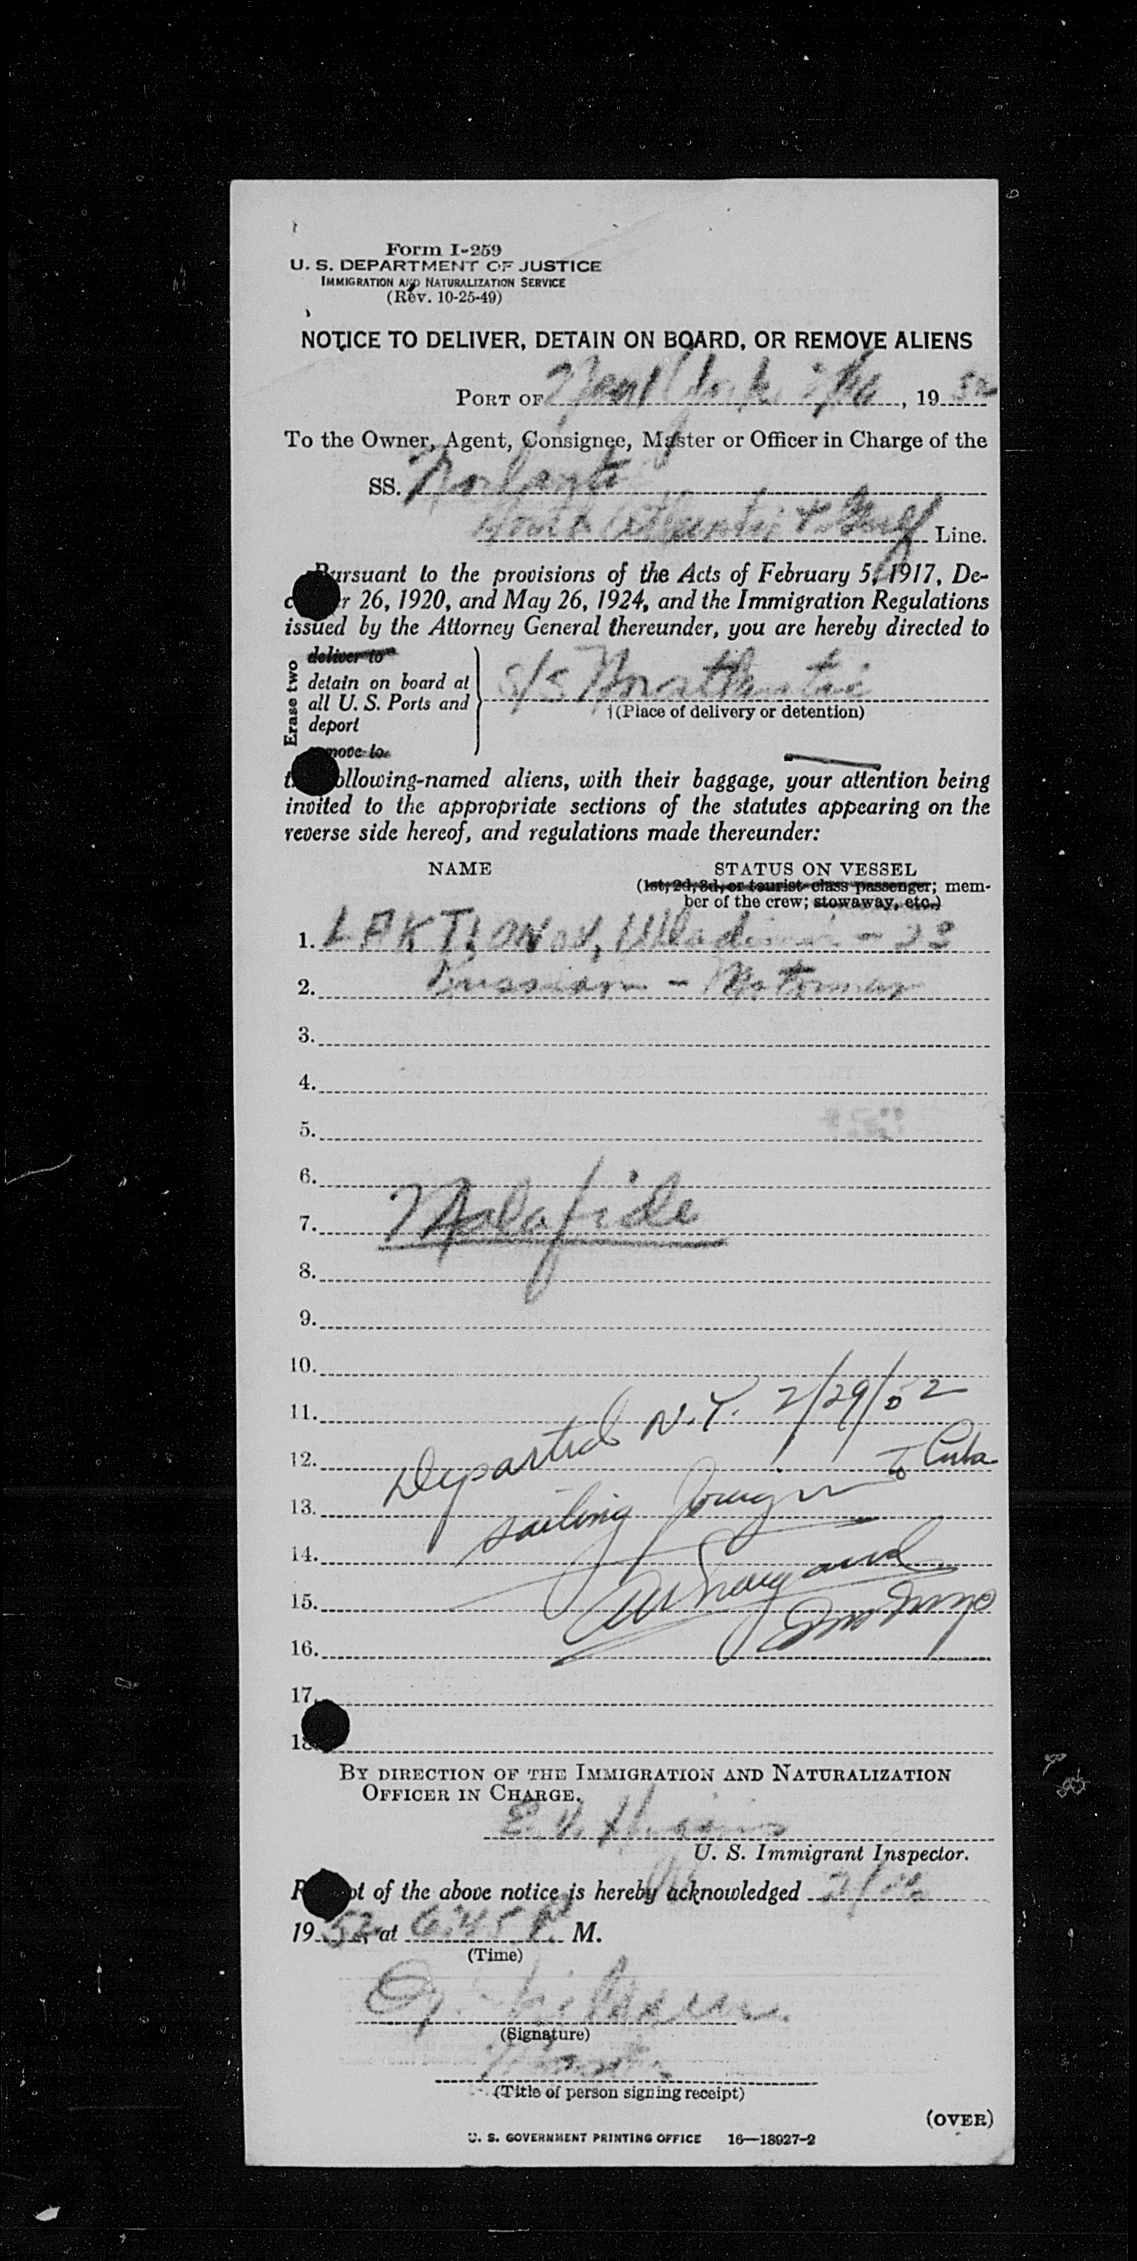 Form I-259
U. S. DEPARTMENT OF JUSTICE
IMMIGRATION AND NATURALIZATION SERVICE
(Rev. 10-25-49)
NOTICE TO DELIVER, DETAIN ON BOARD, OR REMOVE ALIENS
PORT OF New York, 1952
To the Owner, Agent, Consignee, Master or Officer in Charge of the
SS.
Atlantic & Gulf Line.
Pursuant to the provisions of the Acts of February 5, 1917, De-
r 26, 1920, and May 26, 1924, and the Immigration Regulations
issued by the Attorney General thereunder, you are hereby directed to
Erase two
deliver to
detain on board at
all U. S. Ports and
deport
remove to
S/S
(Place of delivery or detention)
following-named aliens, with their baggage, your attention being
invited to the appropriate sections of the statutes appearing on the
reverse side hereof, and regulations made thereunder:
NAME STATUS ON VESSEL
(1st, 2d, 3d, or tourist-class passenger; mem-
ber of the crew; stowaway, etc.)
1. LAKTIONOV, Wladimir - 23
2. Russian - Motorman
3.
4.
5.
6.
7. Malafide
8.
9.
10.
11.
Departed N.Y. 2/29/52
12.
sailing foreign to Cuba
13.
14.
15.
16.
17.
18
BY DIRECTION OF THE IMMIGRATION AND NATURALIZATION
OFFICER IN CHARGE.
E. V.
U. S. Immigrant Inspector.
R pt of the above notice is hereby acknowledged
1952, at 6:45 P. M.
(Time)
(Signature)
Master
(Title of person signing receipt)
(OVER)
U. S. GOVERNMENT PRINTING OFFICE 16—18927-2